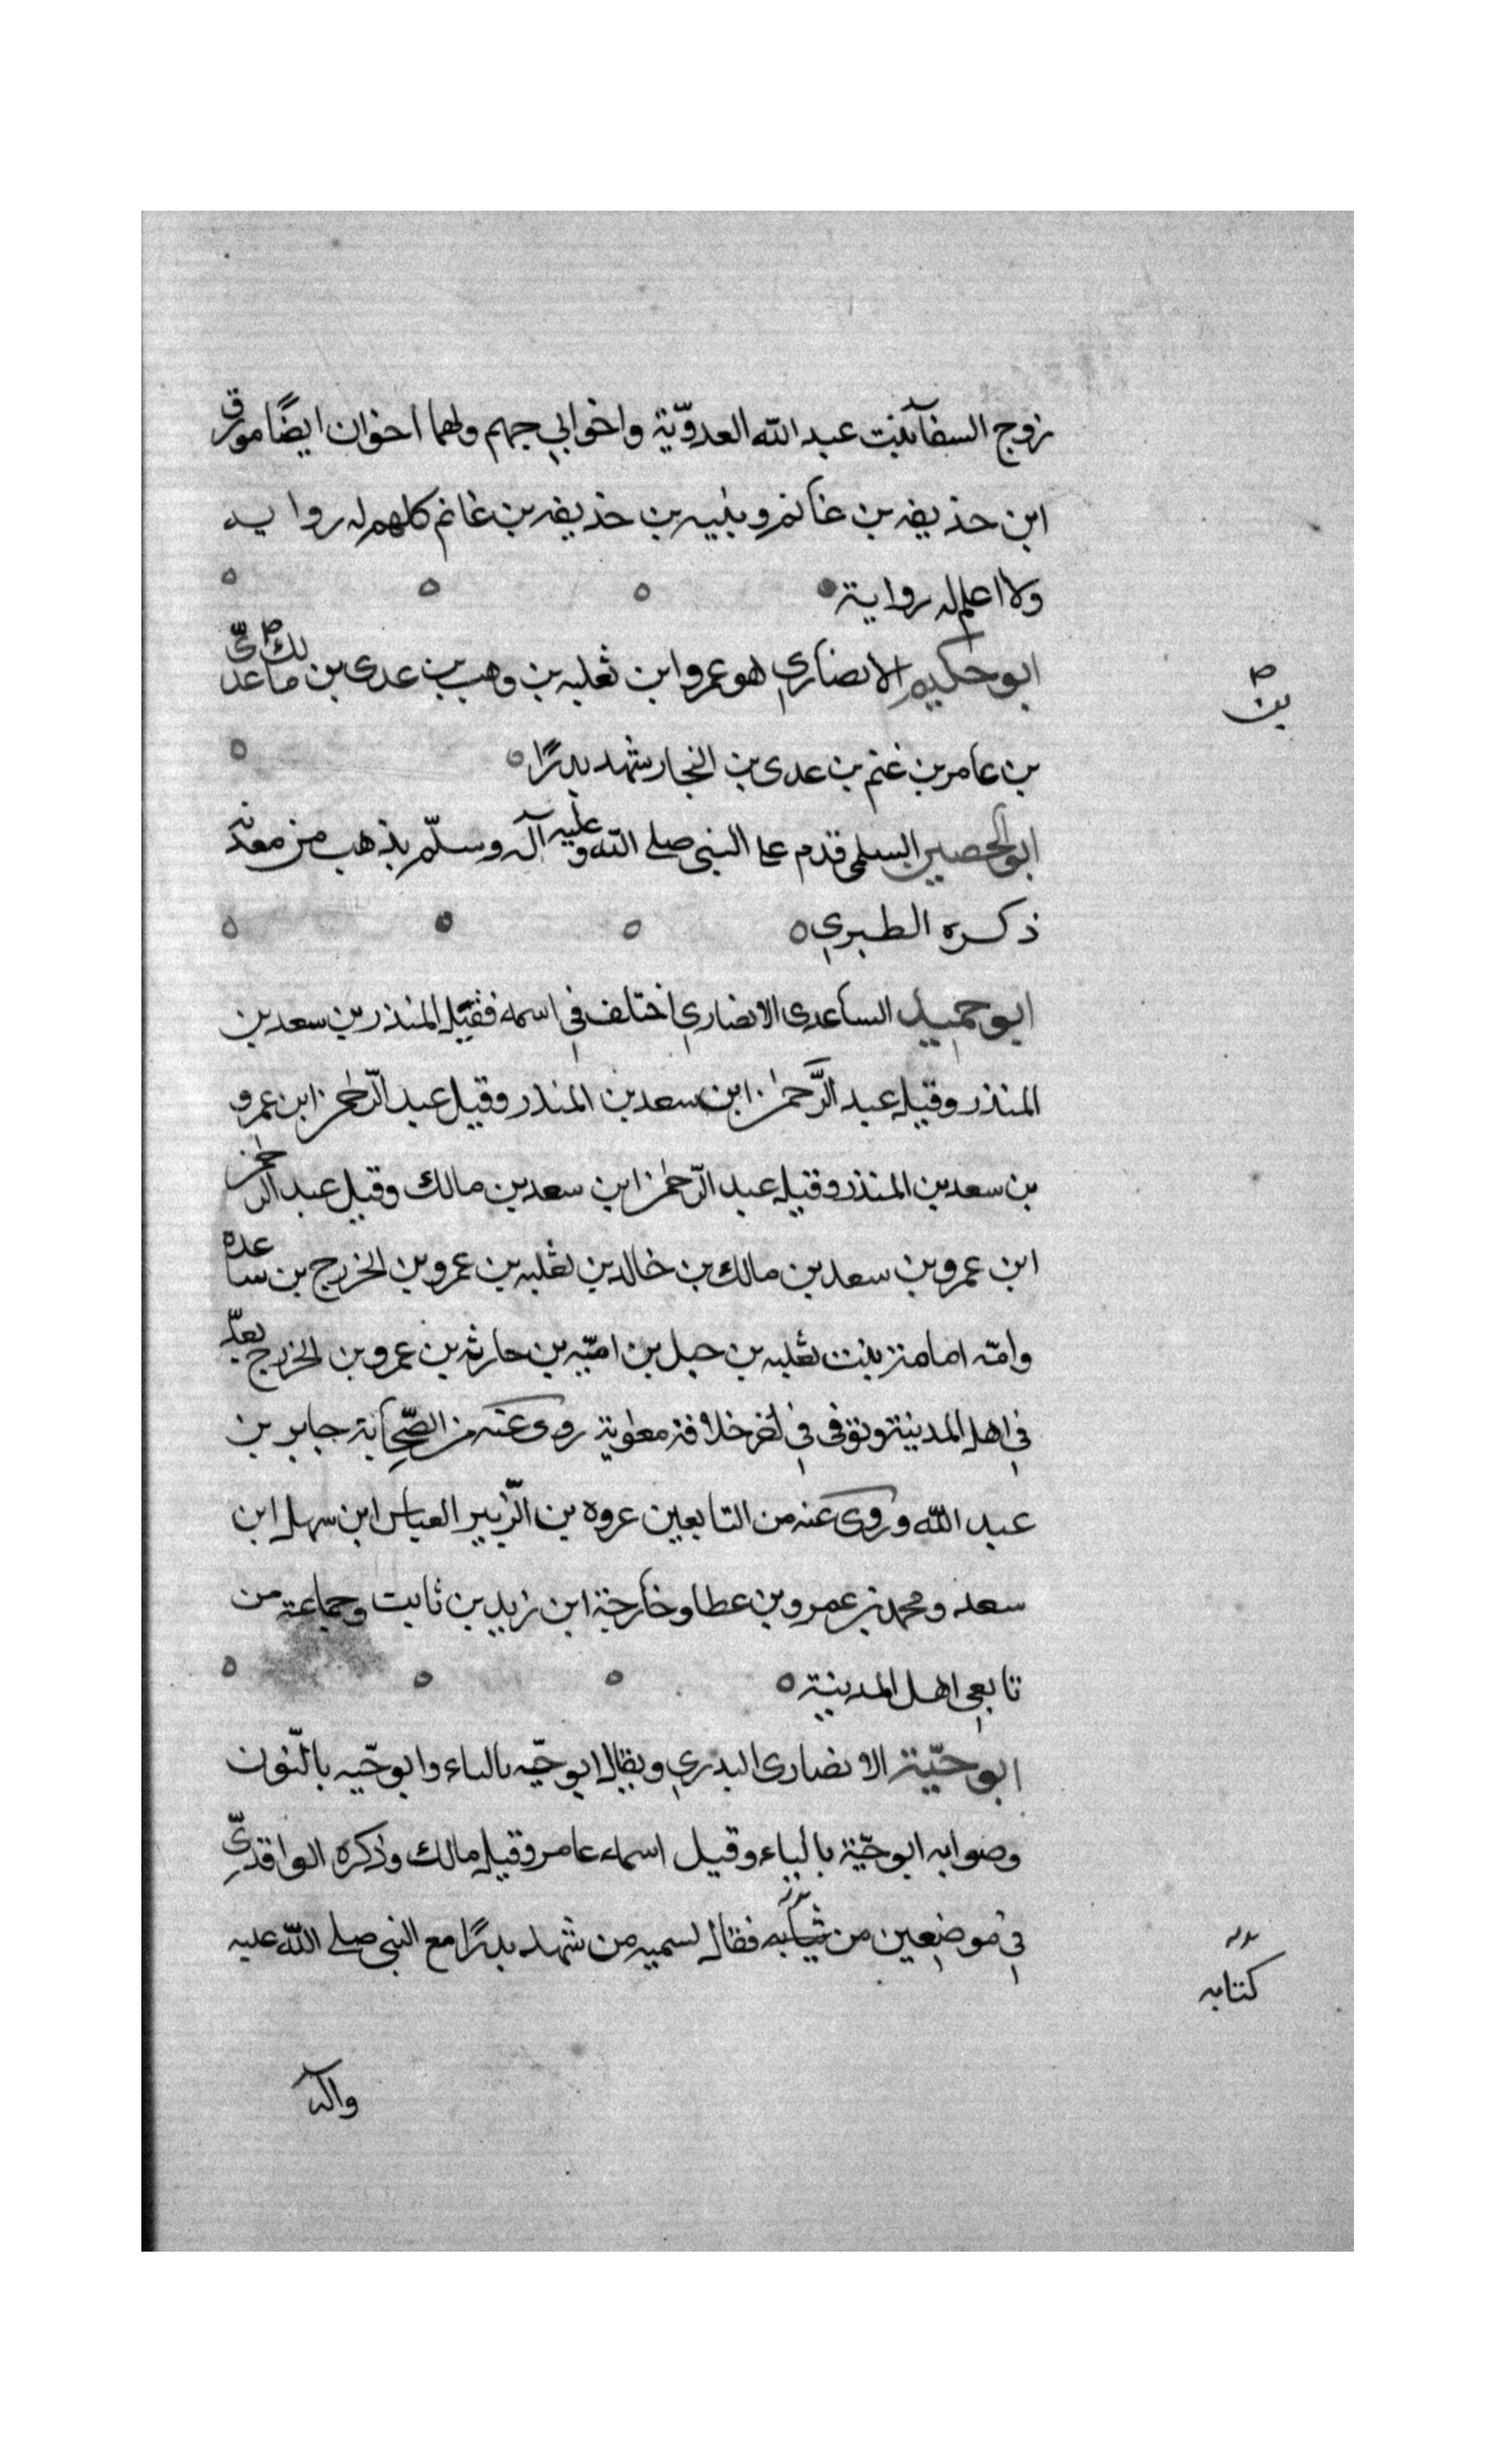 زوج السفآ بنت عبد الله العدويّة واخو ابي جهم ولهما اخوان ايضًا مورق
ابن حذيفه بن غانم وبنيه بن حذيفه بن غانم كلهم له روايه
ولا اعلم له رواية
ابو حكيم الانصاري هو عمرو ابن ثعلبه بن وهب بن عدى بن مالك عدىّ
بن
بن عامر بن غنم بن عدى بن النجار شهد بدرًا
ابو الحصين السلمى قدم على النبى صلى الله عليه وآله وسلّم بذهب من معدنه
ذكره الطبري
ابو حميد الساعدى الانصاري اختلف في اسمه فقيل المنذر بن سعد بن
المنذر وقيل عبد الرّحمن ابن سعد بن المنذر وقيل عبد الرّحمن ابن عمرو
بن سعد بن المنذر وقيل عبد الرّحمن ابن سعد بن مالك وقيل عبد الرحمن
ابن عمرو بن سعد بن مالك بن خالد بن ثعلبه بن عمرو بن الخزرج بن ساعده
وامّه امامة بنت ثعلبه بن جبل بن اميّه بن حارثه بن عمرو بن الخزرج يعدّ
في اهل المدينة وتوفى في اخر خلافة معوية روى عنه من الصّحابة جابر بن
عبد الله وروى عنه من التابعين عروه بن الزّبير العباس ابن سهل ابن
سعد ومحمد بن عمرو بن عطا وخارجة ابن زيد بن ثابت وجماعة من
تابعي اهل المدينة
ابو حيّة الانصارى البدري ويقال ابو حيّه بالياء وابو حنّه بالنّون
وصوابه ابو حبّة بالباء وقيل اسماء عامر وقيل مالك وذكره الواقديّ
في موضعين من كتابه فقال لسميه من شهد بدرًا مع النبى صلى الله عليه
كتابه
وآله